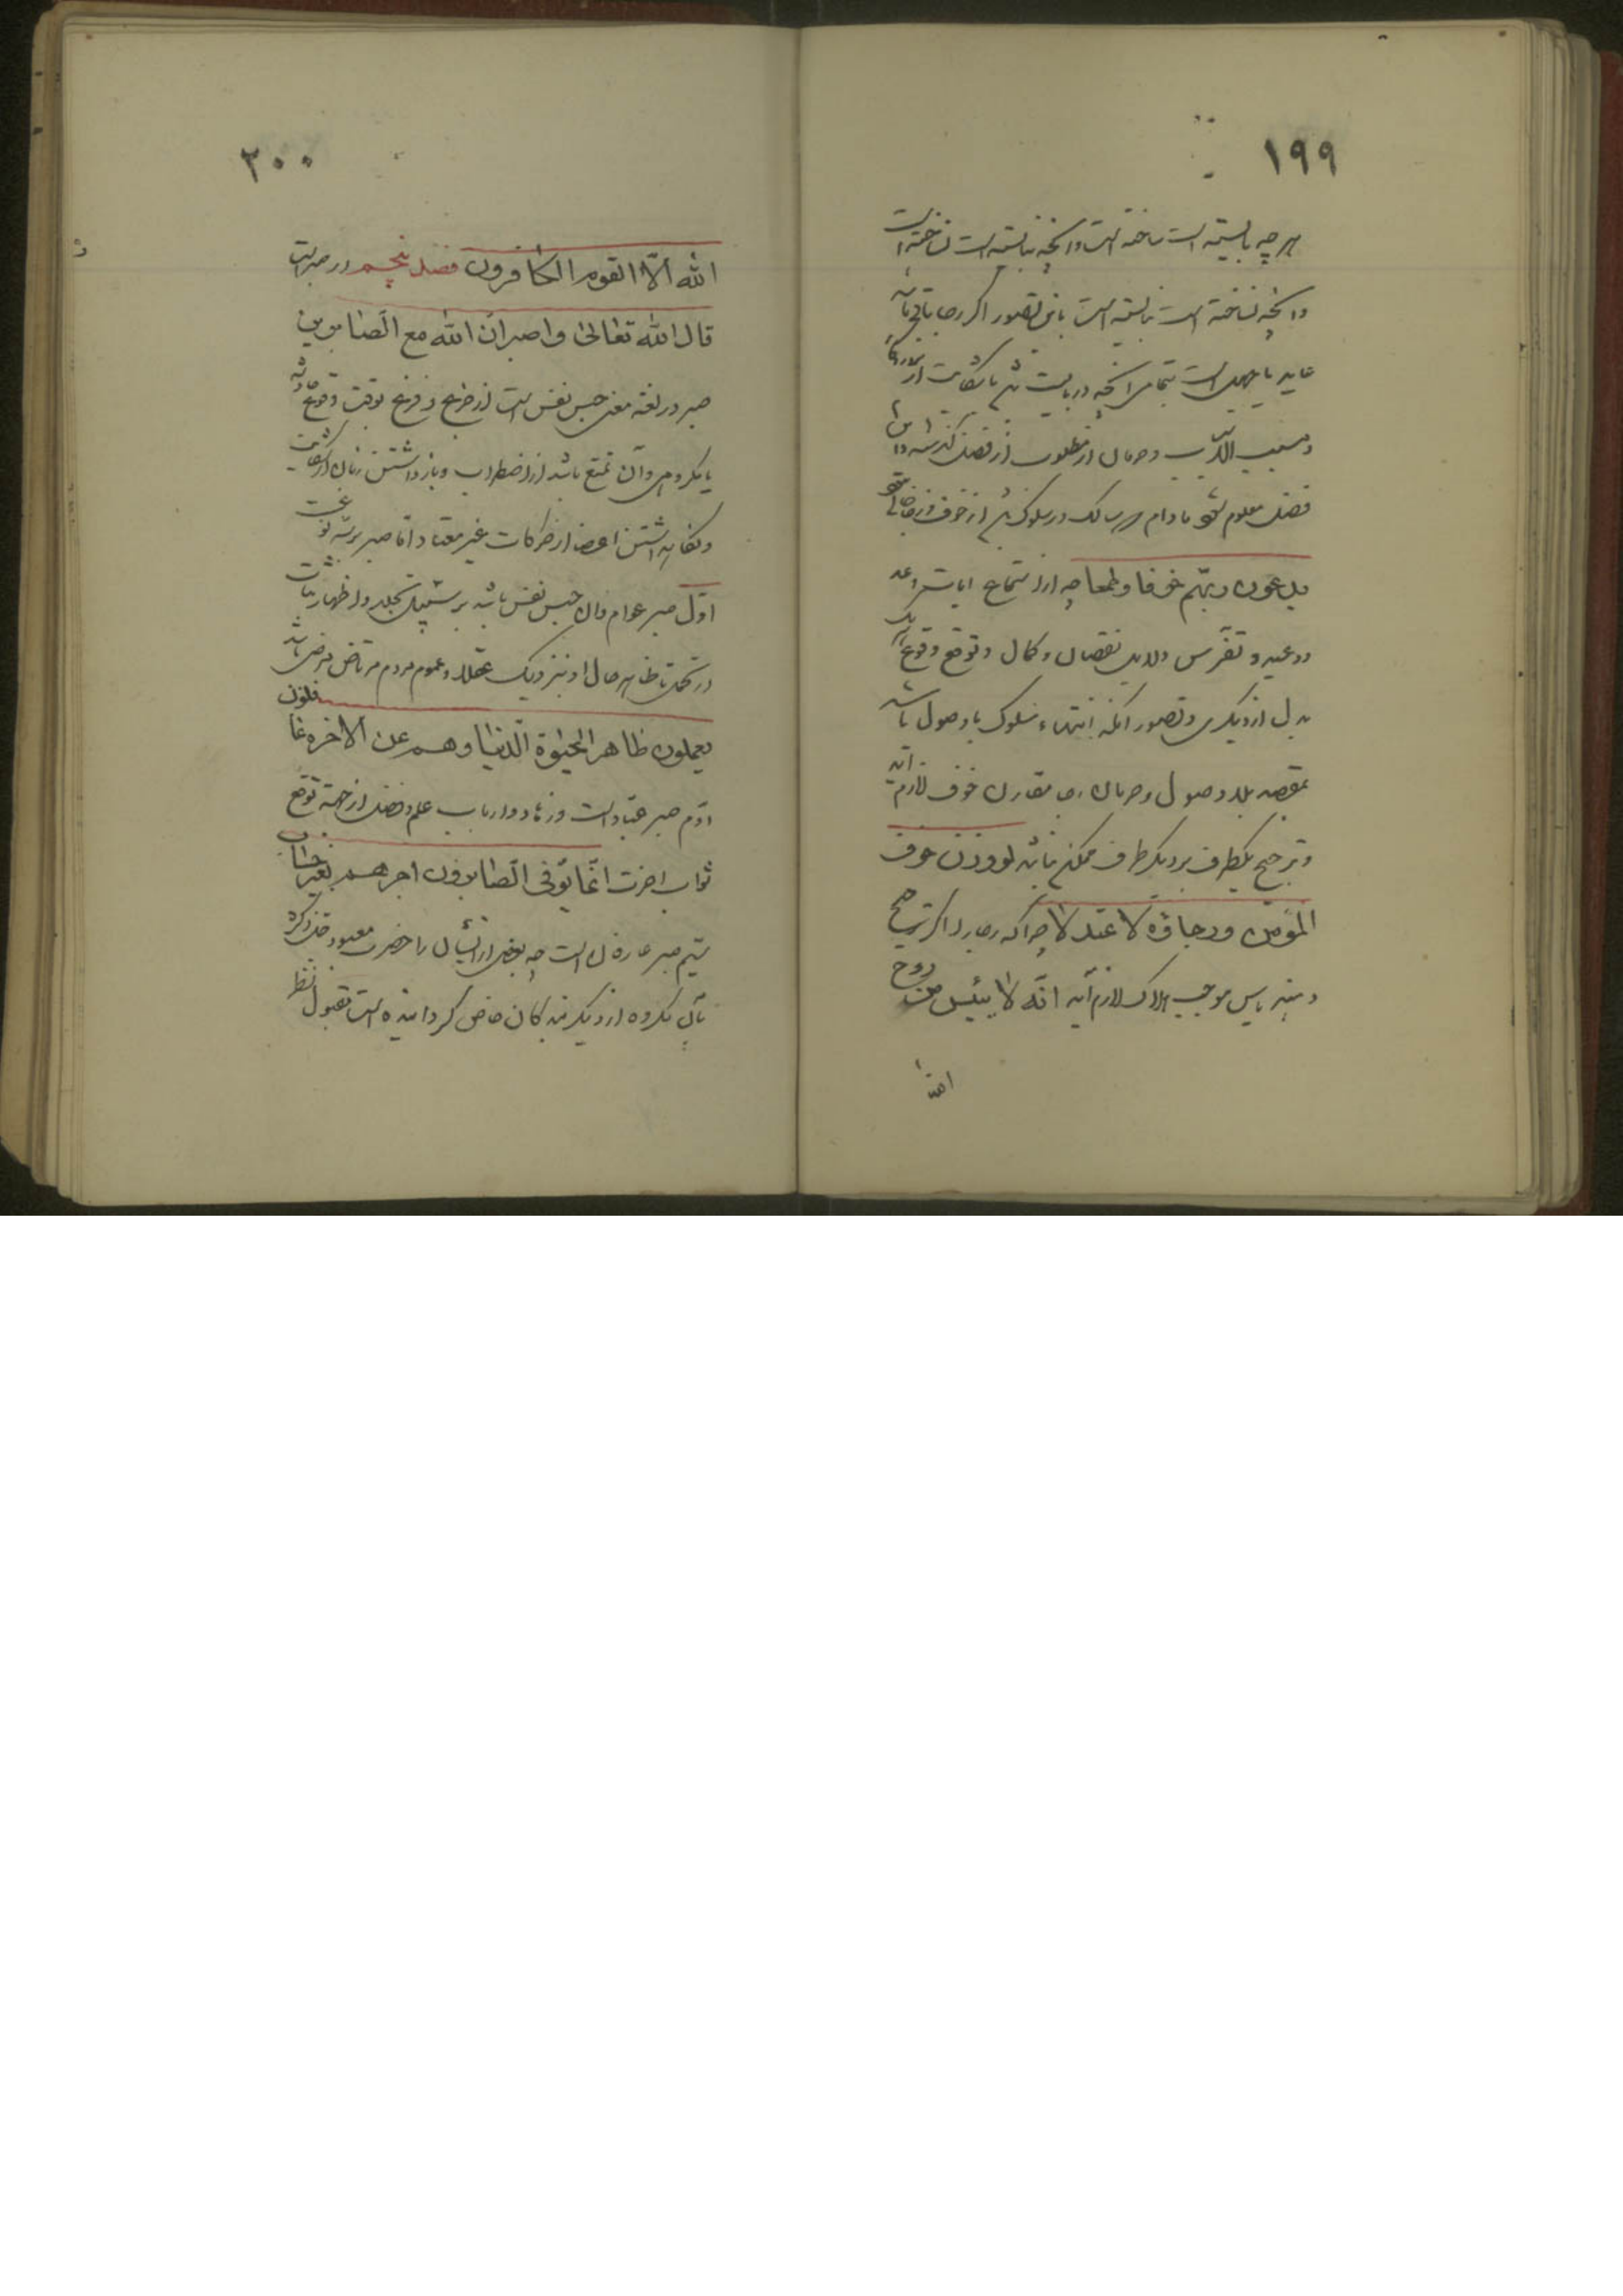 ١٩٩
هر چه بایسته است ساخته است و آنچه نبایسته است نساخته است
و آنچه نساخته است نبایسته است باین تصور اکر رجا باقی باشد
عاید با جهل است بتمامی آنچه دربایست باشد یا شکایت از
و مسبب الاسباب و حرمان از مطلوب از فصل کذشته و این
فصل معلوم شود مادام که سالک در سلوک باشد از خوف و رجا خالی نبود
یدعون ربهم خوفا وطمعا چه از استماع ایات وعد
و وعید و تفرس دلایل نقصان و کمال و توقع وقوع هر یک
بدل از دیکری و تصور آنکه انتهاء سلوک با وصول باشد
بمقصد یا وصول و حرمان رجا مقارن خوف لازم آید
و ترجیح یکطرف بر دیکر طرف ممکن نباشد لو وزن خوف
المؤمن ورجاؤه لاعتدلا چرا که رجا را اکر ترجیح
دهند یاس موجب هلاک لازم آید انه لا ییئس من روح
الله
٢٠٠
الله الّا القوم الکافرون فصل پنجم در صبر است
قال الله تعالی واصبر ان الله مع الصابرین
صبر در لغة معنی حبس نفس است از جزع و فزع بوقت وقوع حادثه
یا مکروهی و آن منع باشد از اضطراب و باز داشتن زبان از شکایت
و نکاه داشتن اعضا از حرکات غیر معتاد و اما صبر بر سه نوع است
اوّل صبر عوام و آن حبس نفس باشد بر سبیل تجلد و اظهار ثبات
در تحمل تا ظاهر حال او بنزدیک عقلا و عموم مردم مرضی باشد
یعملون ظاهر الحیوة الدنیا وهم عن الاخره غافلون
دوّم صبر عبّاد است و زهاد و ارباب علم و فضل از جهة توقع
ثواب اخرت انّما یوفی الصابرون اجرهم بغیر حساب
سیم صبر عارفان است چه بعضی از ایشان را حضرت معبود جل ذکره
بآن مکروه از دیکر بندکان خاص کردانیده است بقبول نظر